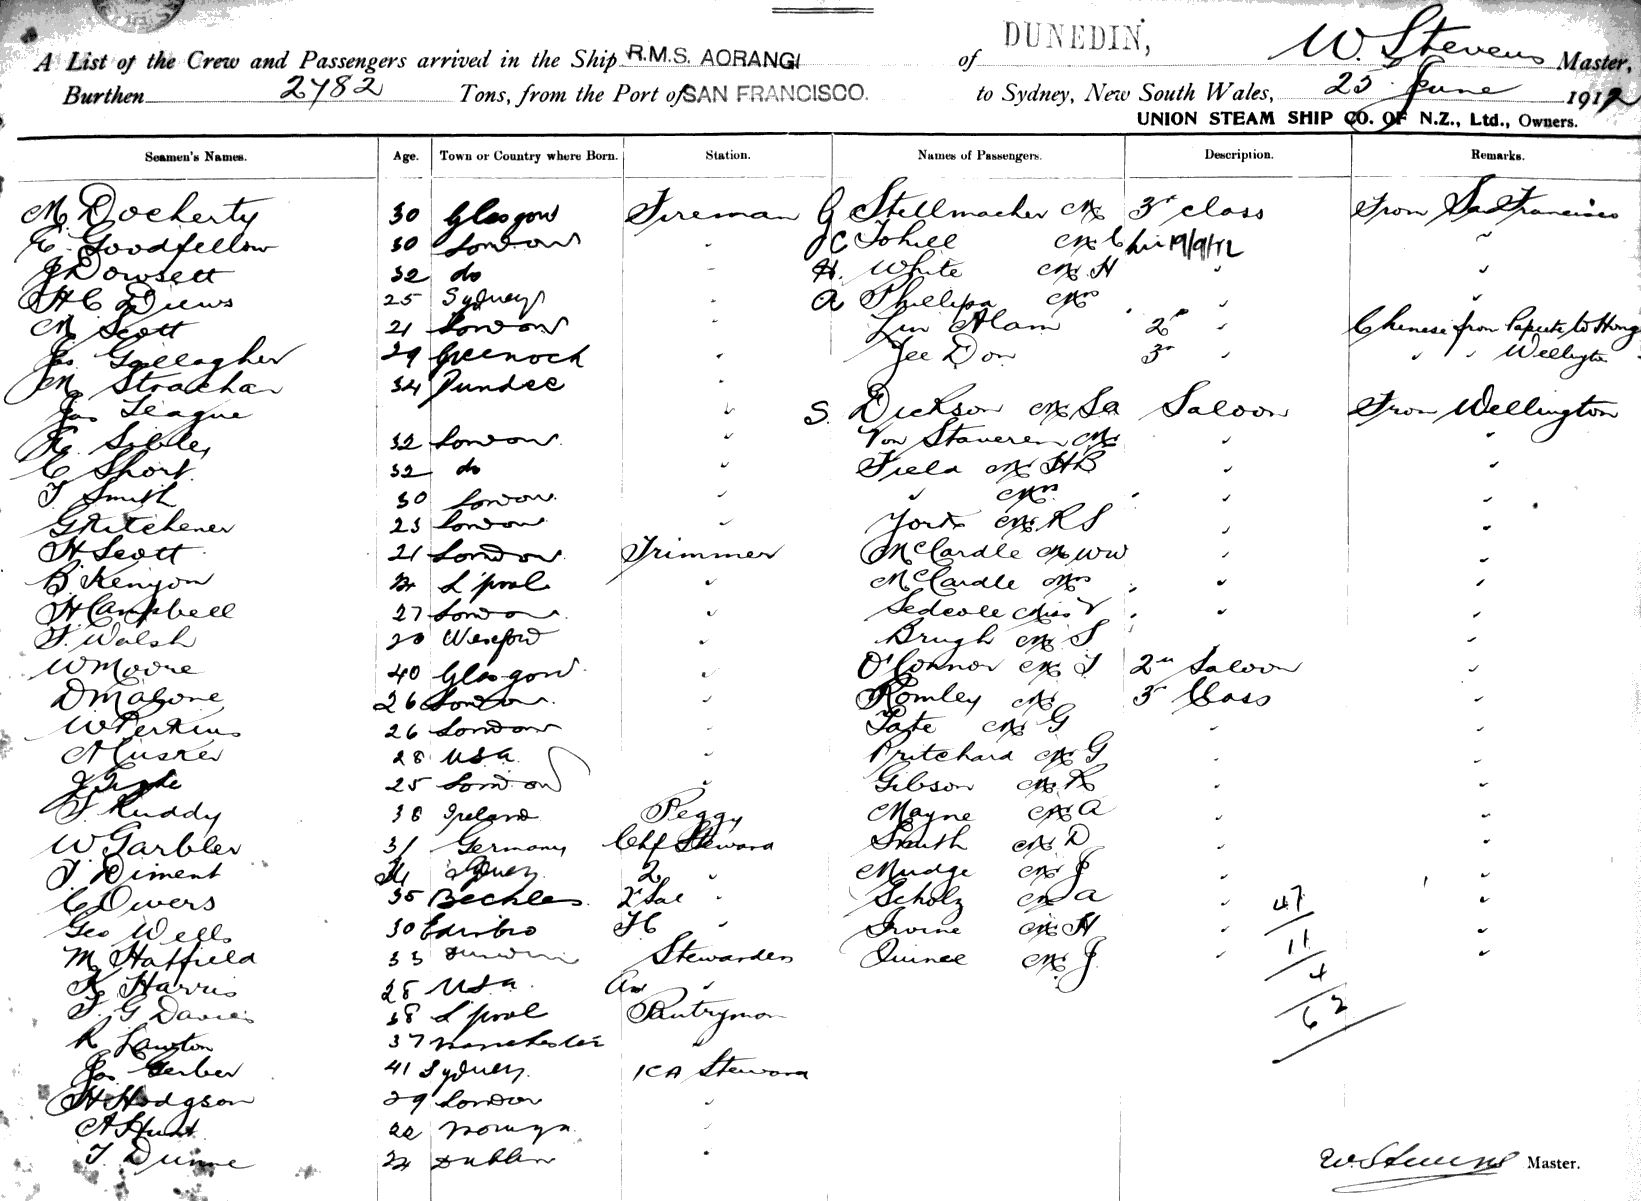 DUNEDIN,
A List of the Crew and Passengers arrived in the Ship R.M.S. AORANGI of W. Stevens Master,
Burthen 2782 Tons, from the Port of SAN FRANCISCO. to Sydney, New South Wales, 25 June 1912
UNION STEAM SHIP CO. OF N.Z., Ltd., Owners.
Seamen's Names. Age. Town or Country where Born. Station. Names of Passengers. Description. Remarks.
M Docherty 30 Glasgow Fireman G Stellmacher Mr 3r class From San Francisco
E. Goodfellow 30 London " J C Tohill Mr 19/9/12 "
J Dowsett 32 do " H. White Mr H " "
H C Diews 25 Sydney " A Phillips Mrs " "
M Scott 21 London " Lin Alam 2n " Chinese from Papeete to Hong
Jas Gallagher 29 Greenock " Jee Don 3r " " " Wellington
M Strachan 34 Dundee "
Jas League " S. Dickson Mr Sa Saloon From Wellington
E. Sibley 32 London " Von Staveren Mr " "
C Short 32 do " Field Mr H B " "
T Smith 30 London " " Mrs " "
G Kitchener 23 London " York Mr R S " "
H Scott 21 London Trimmer McCardle Mr W W " "
B Kenyon 21 L'pool " McCardle Mrs " "
H Campbell 27 London " Sedcole Miss V " "
T. Walsh 20 Wexford " Brugh Mr S "
W Moore 40 Glasgow " O'Connor Mr T 2n Saloon "
D Malone 26 London " Romley Mr 3r Class "
W Perkins 26 London " Tate Mr G " "
A Cusker 28 USA " Pritchard Mr G " "
25 London " Gibson Mr R " "
T Ruddy 38 Ireland Peggy Mayne Mr A " "
W Garbler 31 Germany Chf Steward Smith Mr D " "
T. Diment Sydney 2 " Mudge Mr J " "
C Divers 35 Beckles 2r Sal " Scholz Mr A " 47 "
Geo Wells 30 Edinbro " Irvine Mr H " "
M Hatfield 33 Dunedin Stewardess Quinee Mr J " 11 "
K Harris 28 USA As " 4
T. G Davies 38 L'pool Pantryman 62
R Lawton 37 Manchester "
Jas Gerber 41 Sydney Steward
H Hodgson 29 London "
A Hunt 22 "
T Dunne 24 Dublin "
W. Stevens Master.